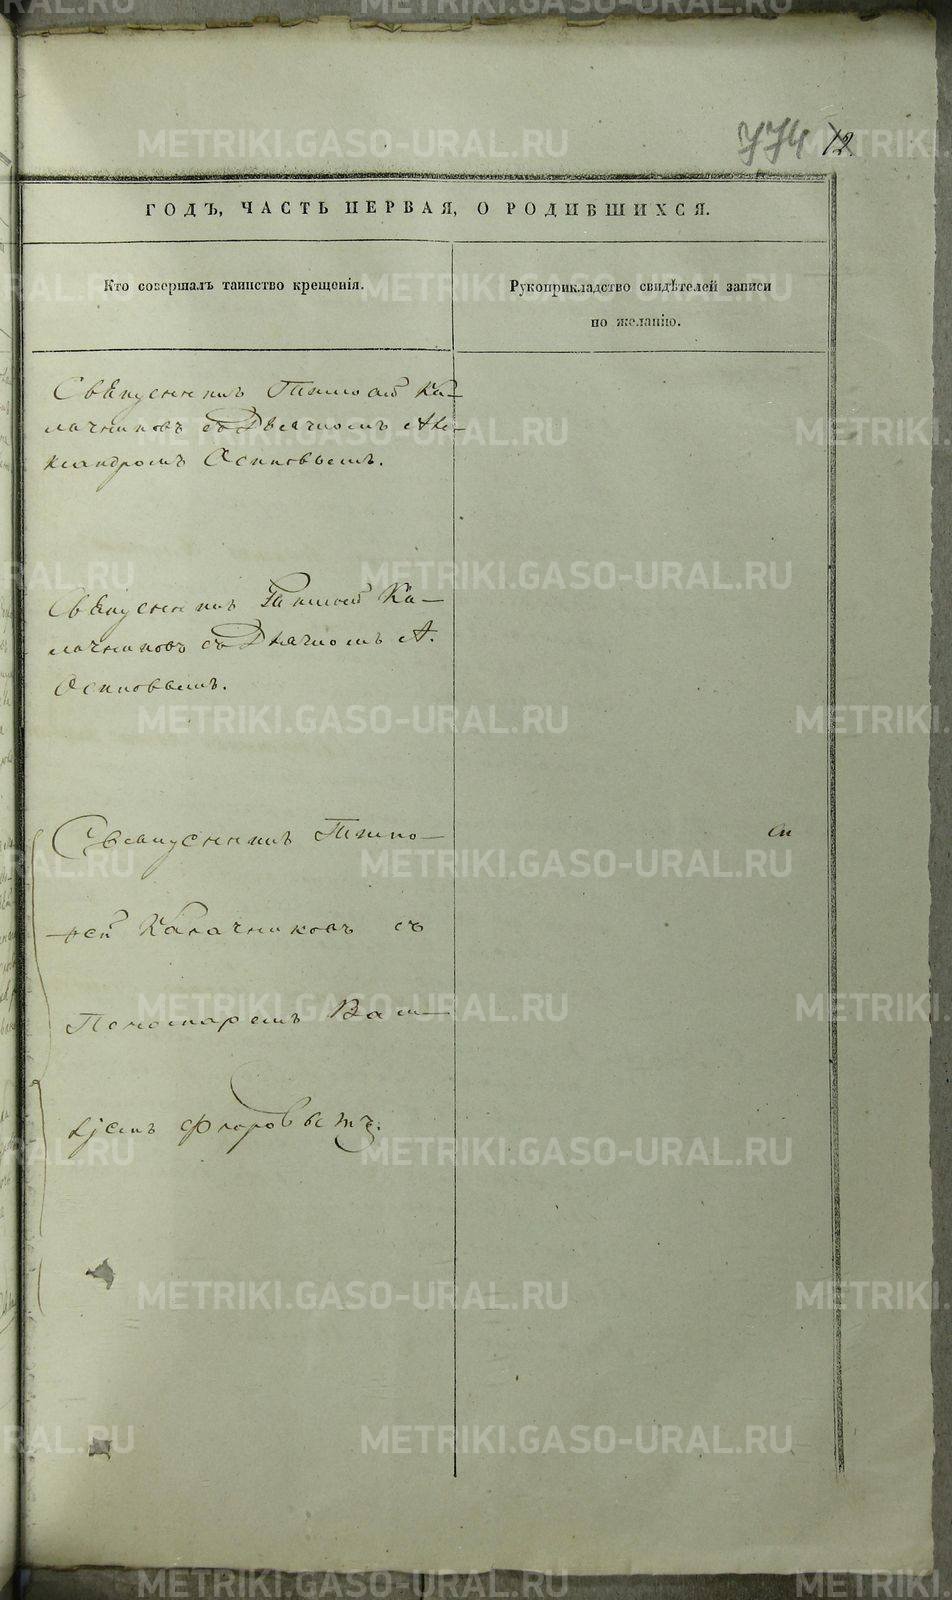 774 12
ГОДЪ, ЧАСТЬ ПЕРВАЯ, О РОДИВШИХСЯ.
Кто совершалъ таинство крещенія.
Рукоприкладство свидѣтелей записи
по желанію.
Священникъ Тимофей Ка-
лачниковъ съ Дьячкомъ Але-
ксандромъ Осиповымъ.
Священникъ Тимофей Ка-
лачниковъ съ Дьячкомъ А.
Осиповымъ.
Священникъ Тимо-
фей Калачниковъ съ
Пономаремъ
Флоровымъ.
METRIKI.GASO-URAL.RU